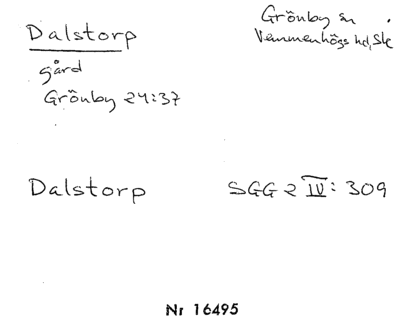 Dalstorp
Grönby sn
Vemmenhögs hd, Sk
gård
Grönby 24:37
Dalstorp
SGG 2 IV: 309
Nr 16495